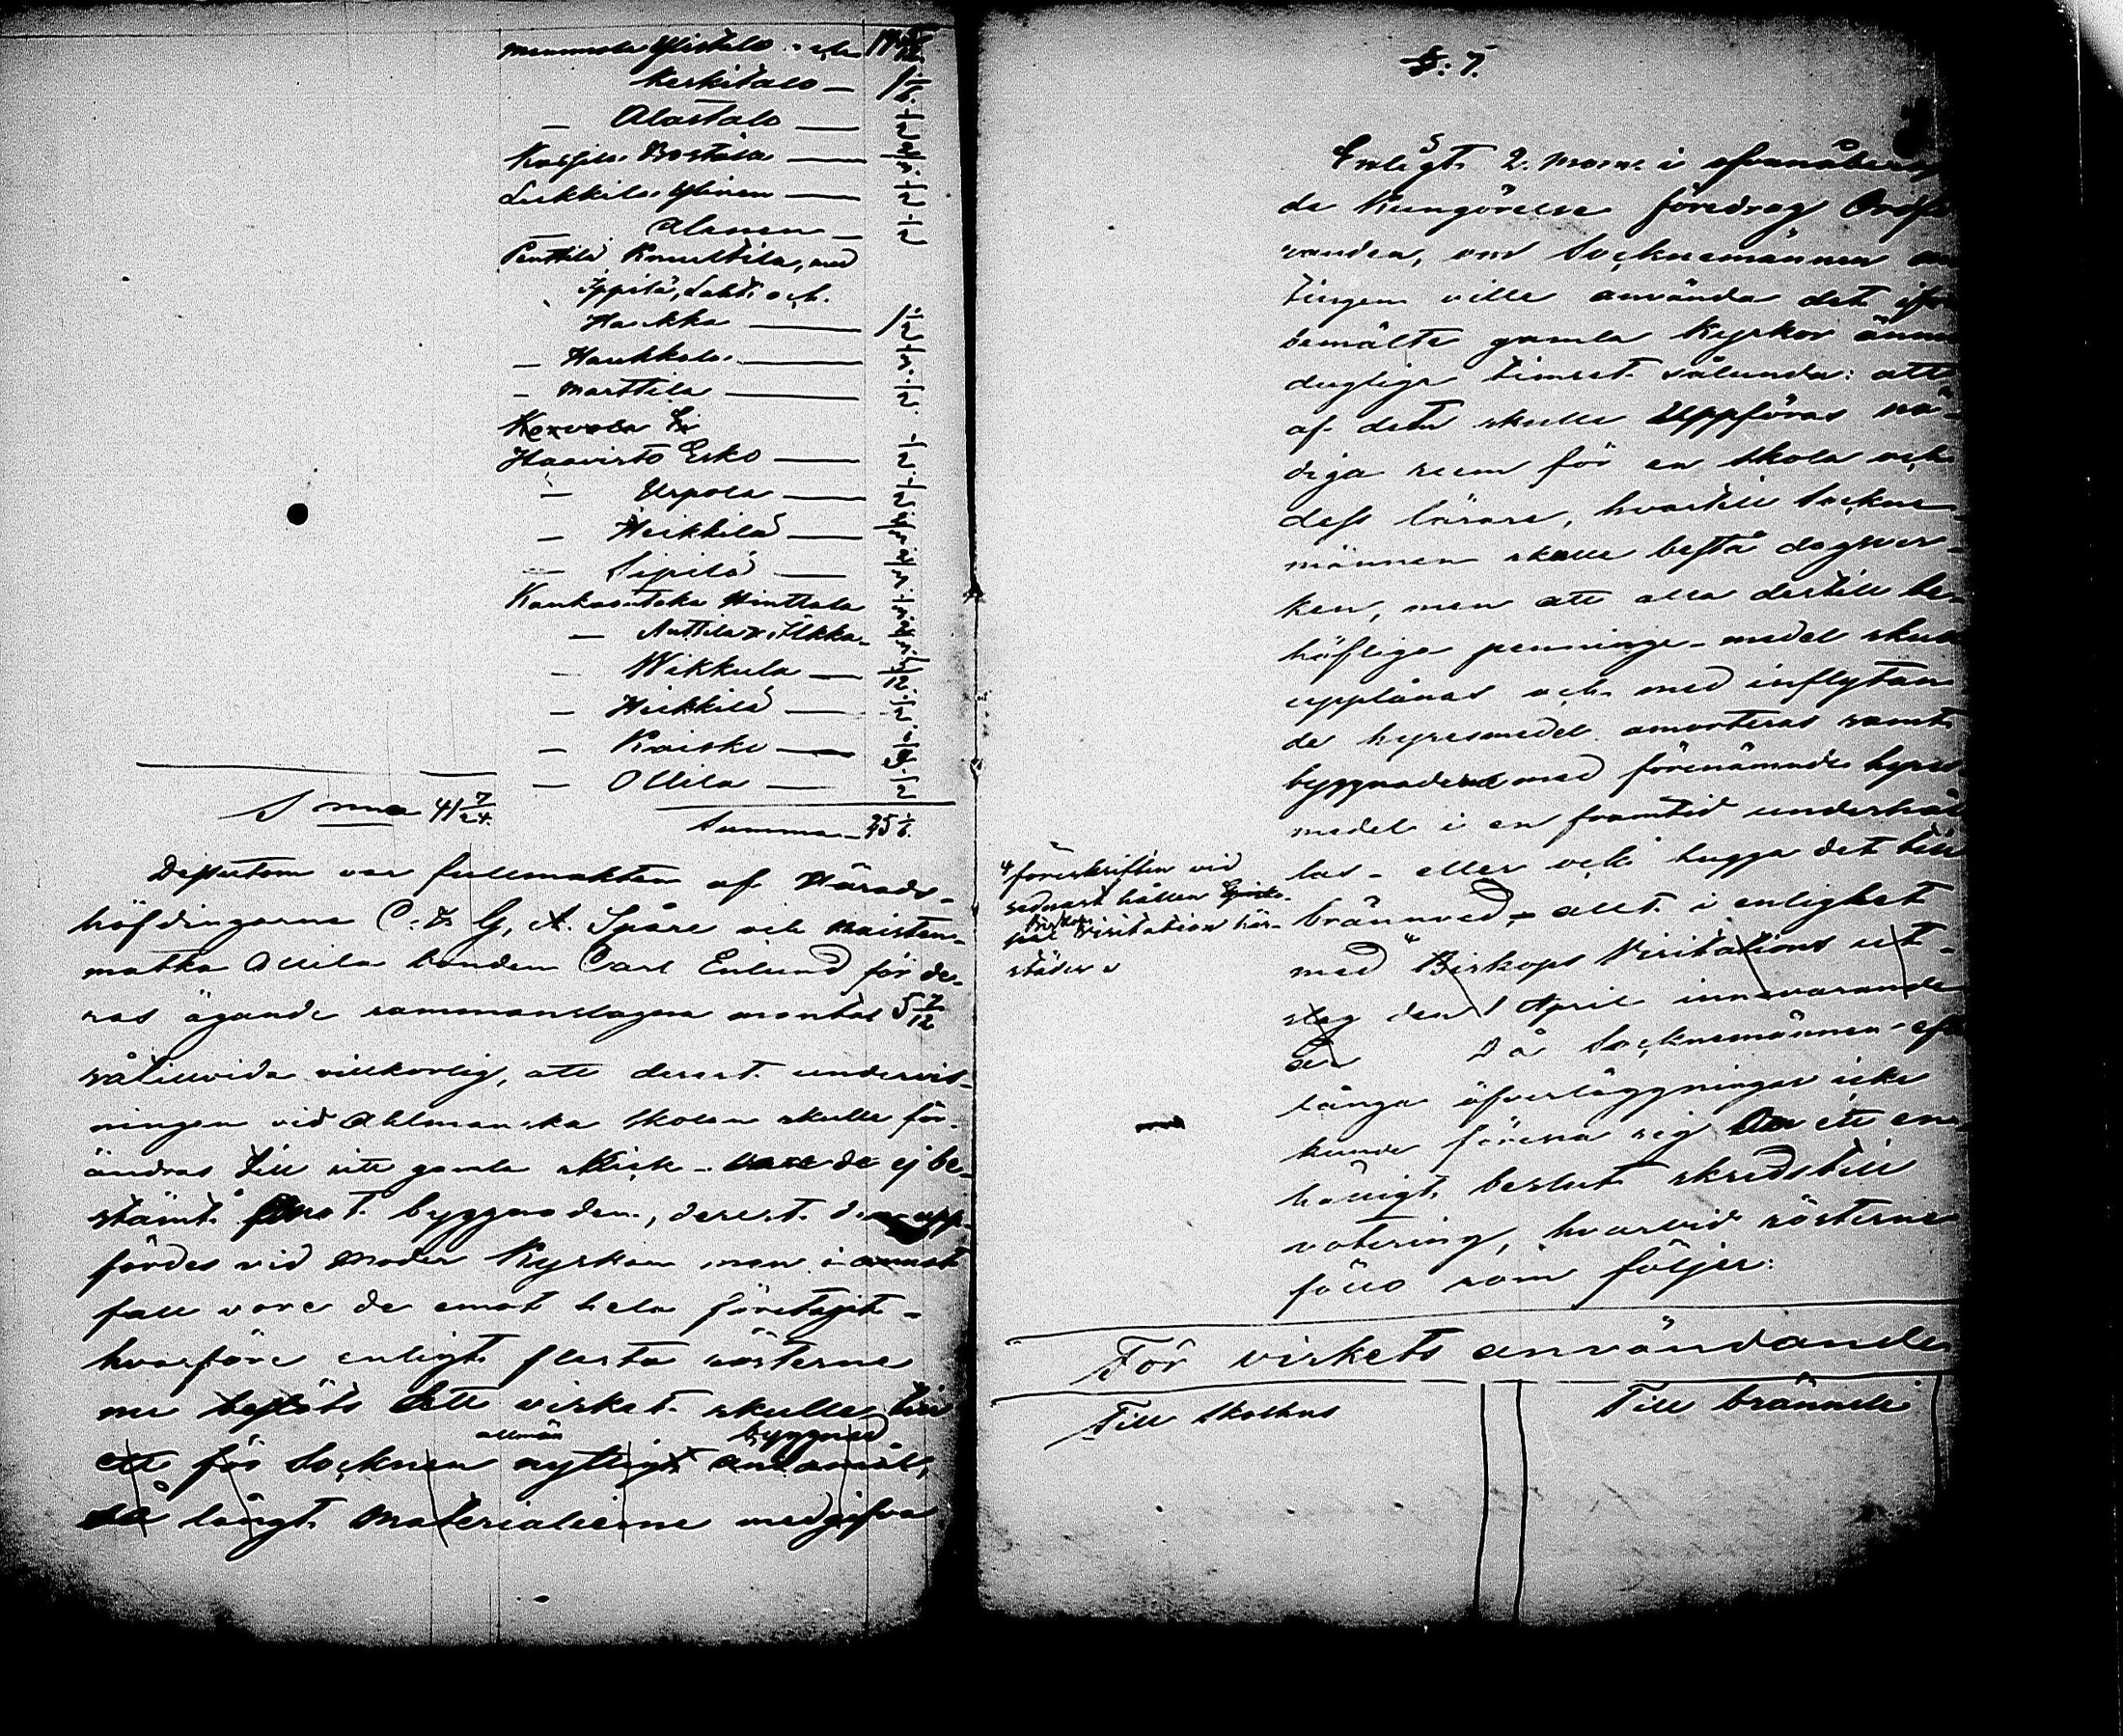 Ylistalo
Keskitalo —
— Alastalo —
Bostila —
Leikkila Ylinen —
— Alanen —
Penttilä Knuuttila, med
Ippilä, Lahti och
Haukka —
— Haukkala —
— Marttila —
Haavisto Esko —
— Urpola —
— Heikkilä —
— Sipilä —
Kankaantaka Hinttala
— Anttila & Ilkka —
— Nikkula —
— Heikkilä —
— Raiski —
— Ollila —
Summa 41 7/24
Summa 25 1/6
Dessutom var fullmakten af Härads-
höfdingarne C. & G. A. Spåre och
matka Ollila bonden Carl Enlund för de-
ras ägande sammanslagna mantal 5 7/12
såtillvida villkorlig, att derest undervis-
ningen vid Ahlmanska skolan skulle för-
ändras till sitt gamla skick — vore de ej be-
stämt emot byggnaden, derest den upp-
fördes vid moder Kyrkan men i annat
fall vore de emot hela företaget —
hvarföre enligt flesta rösterne
nu beslöts att virket skulle till
allmän byggnad
ett för Socknen nyttigt ändamål,
så långt materialierne medgifva
§: 7.
Enligt 2. mom: i ofvannämn-
de Kungörelse föredrog Ordfö-
randen, om Socknemännen an-
tingen ville använda det ifrån
bemälte gamla Kyrkor ännu
dugliga timret sålunda: att
af detta skulle uppföras nö-
diga rum för en skola och
dess lärare, hvartill Sockne-
männen skulle bestå dagsver-
ken, men att alla dertill be-
höfliga penninge-medel skulle
upplånas och med inflytan-
de hyresmedel amorteras samt
byggnaden med förenämnde hyres-
medel i en framtid underhål-
las — eller och hugga det till
brännved, allt i enlighet
med Biskops Visitations ut-
slag den 1 April innevarande
år. Då Socknemännen efter
långa öfverläggningar icke
kunde förena sig om ett en-
hälligt beslut skreds till
votering, hvarvid rösterne
föllo som följer:
föreskriften vid
sednast hållen
Biskops visitation här-
städes
För virkets användande
Till Skolhus
Till bränsle